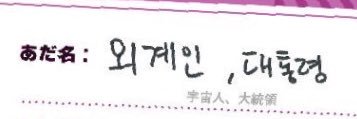 あだ名： 외계인 , 대통령
宇宙人、大統領